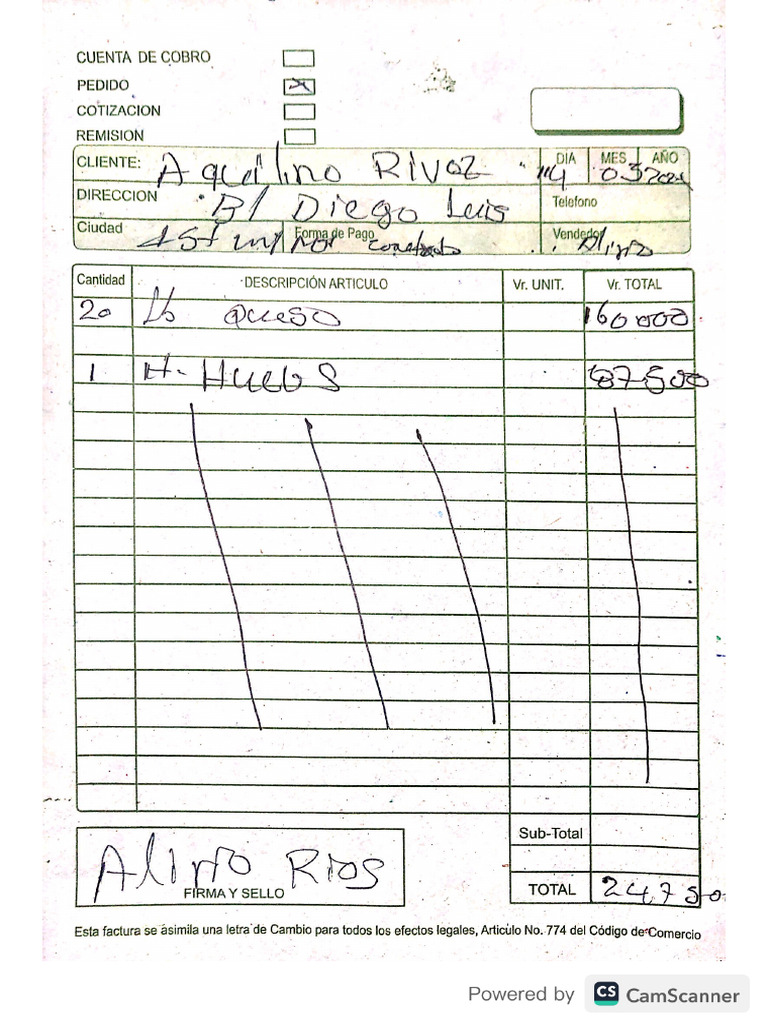 CUENTA DE COBRO
PEDIDO X
COTIZACION
REMISION
CLIENTE: Aquilino Rivaz DIA 14 MES 03 AÑO 2024
DIRECCION B/ Diego Luis Telefono
Ciudad Forma de Pago contado Vendedor Alirio
Cantidad DESCRIPCIÓN ARTICULO Vr. UNIT. Vr. TOTAL
20 Lb queso 160000
1 H- Huebos 87500
Sub-Total
Alirio Rios
FIRMA Y SELLO
TOTAL 247500
Esta factura se asimila una letra de Cambio para todos los efectos legales, Articulo No. 774 del Código de Comercio
Powered by CS CamScanner